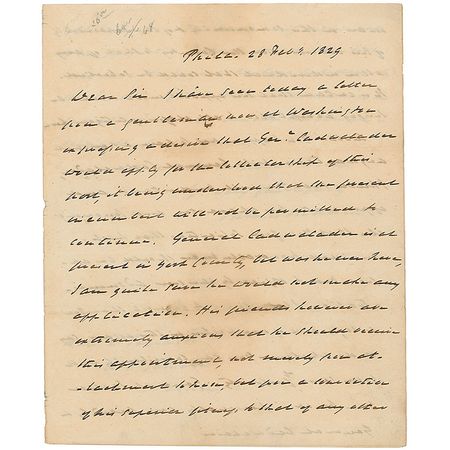 Phila. 28 Feby. 1829
Dear Sir I have seen today a letter
from a gentleman now at Washington
expressing a desire that Genl. Cadwalader
would apply for the collectorship of this
port, it being understood that the present
incumbent will not be permitted to
continue. General Cadwalader is at
present in York County, but was he ever here,
I am quite sure he would not make any
application. His friends however are
extremely anxious that he should receive
this appointment, not merely from at-
-tachment to him, but from a conviction
of his superior fitness to that of any other